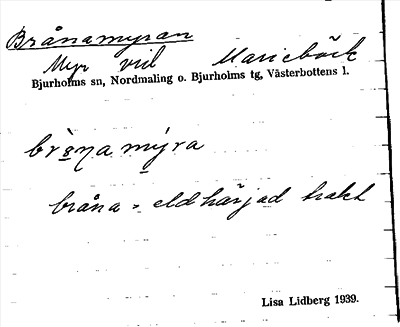 Brånamyran
Myr vid Mariebäck
Bjurholms sn, Nordmaling o. Bjurholms tg, Västerbottens l.
myra
bråna = eldhärjad trakt
Lisa Lidberg 1939.